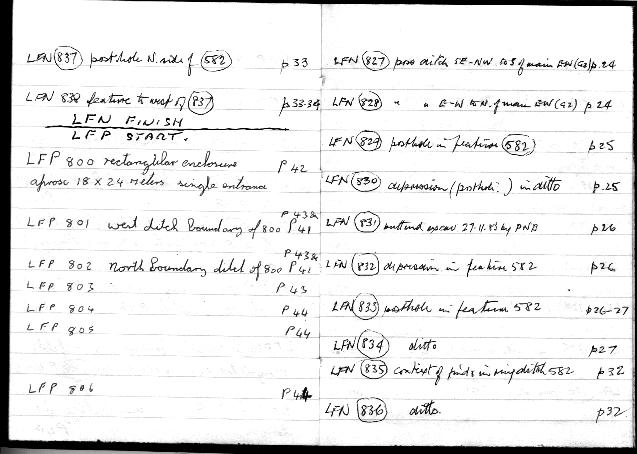 LFN 837 posthole N. side of 582 p33
LFN 838 feature to west of 837 p33-34
LFN FINISH
LFP START.
LFP 800 rectangular enclosure P42
aprox 18 x 24 meters single entrance
LFP 801 west ditch boundary of 800 P43& P41
LFP 802 North boundary ditch of 800 P43& P41
LFP 803 P43
LFP 804 P44
LFP 805 P44
LFP 806 P44
LFN 827 poss ditch SE-NW to S of main EW (92) p.24
LFN 828 " " E-W to N. of main EW (92) p24
LFN 829 posthole in feature 582 p25
LFN 830 depression (posthole?) in ditto p.25
LFN 831 butt end excav 27.11.83 by p26
LFN 832 depression in feature 582 p26
LFN 833 posthole in feature 582 p26-27
LFN 834 ditto p27
LFN 835 context of finds in ring ditch 582 p32
LFN 836 ditto. p32